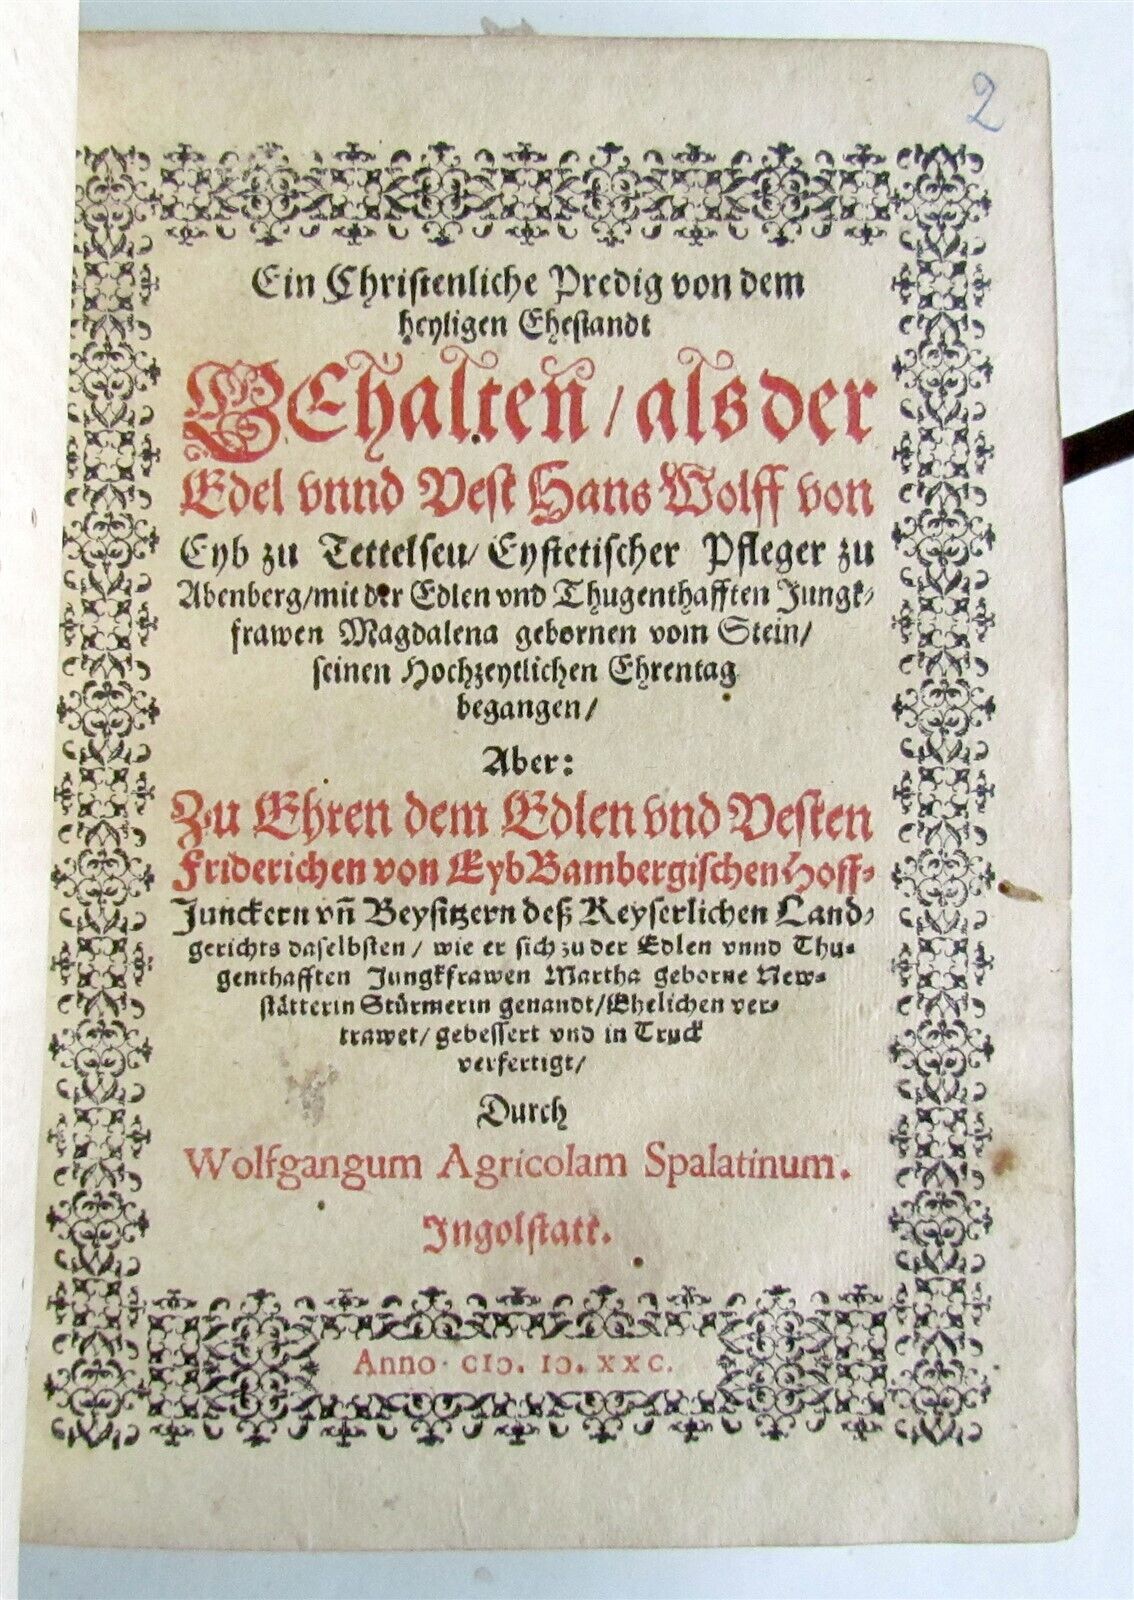 2
Ein Christenliche Predig von dem
heyligen Ehestandt
GEhalten / als der
Edel vnnd Vest Hans Wolff von
Eyb zu Tettelseu / Eystetischer Pfleger zu
Abenberg / mit der Edlen vnd Thugenthafften Jungk⸗
frawen Magdalena gebornen vom Stein /
seinen Hochzeytlichen Ehrentag
begangen /
Aber:
Zu Ehren dem Edlen vnd Vesten
Friderichen von Eyb Bambergischen Hoff⸗
Junckern vñ Beysitzern deß Keyserlichen Land⸗
gerichts daselbsten / wie er sich zu der Edlen vnnd Thu⸗
genthafften Jungkfrawen Martha geborne New⸗
stätterin Stürmerin genandt / Ehelichen ver⸗
trawet / gebessert vnd in Truck
verfertigt /
Durch
Wolfgangum Agricolam Spalatinum.
Ingolstatt.
Anno. CIↃ. IↃ. XXC.